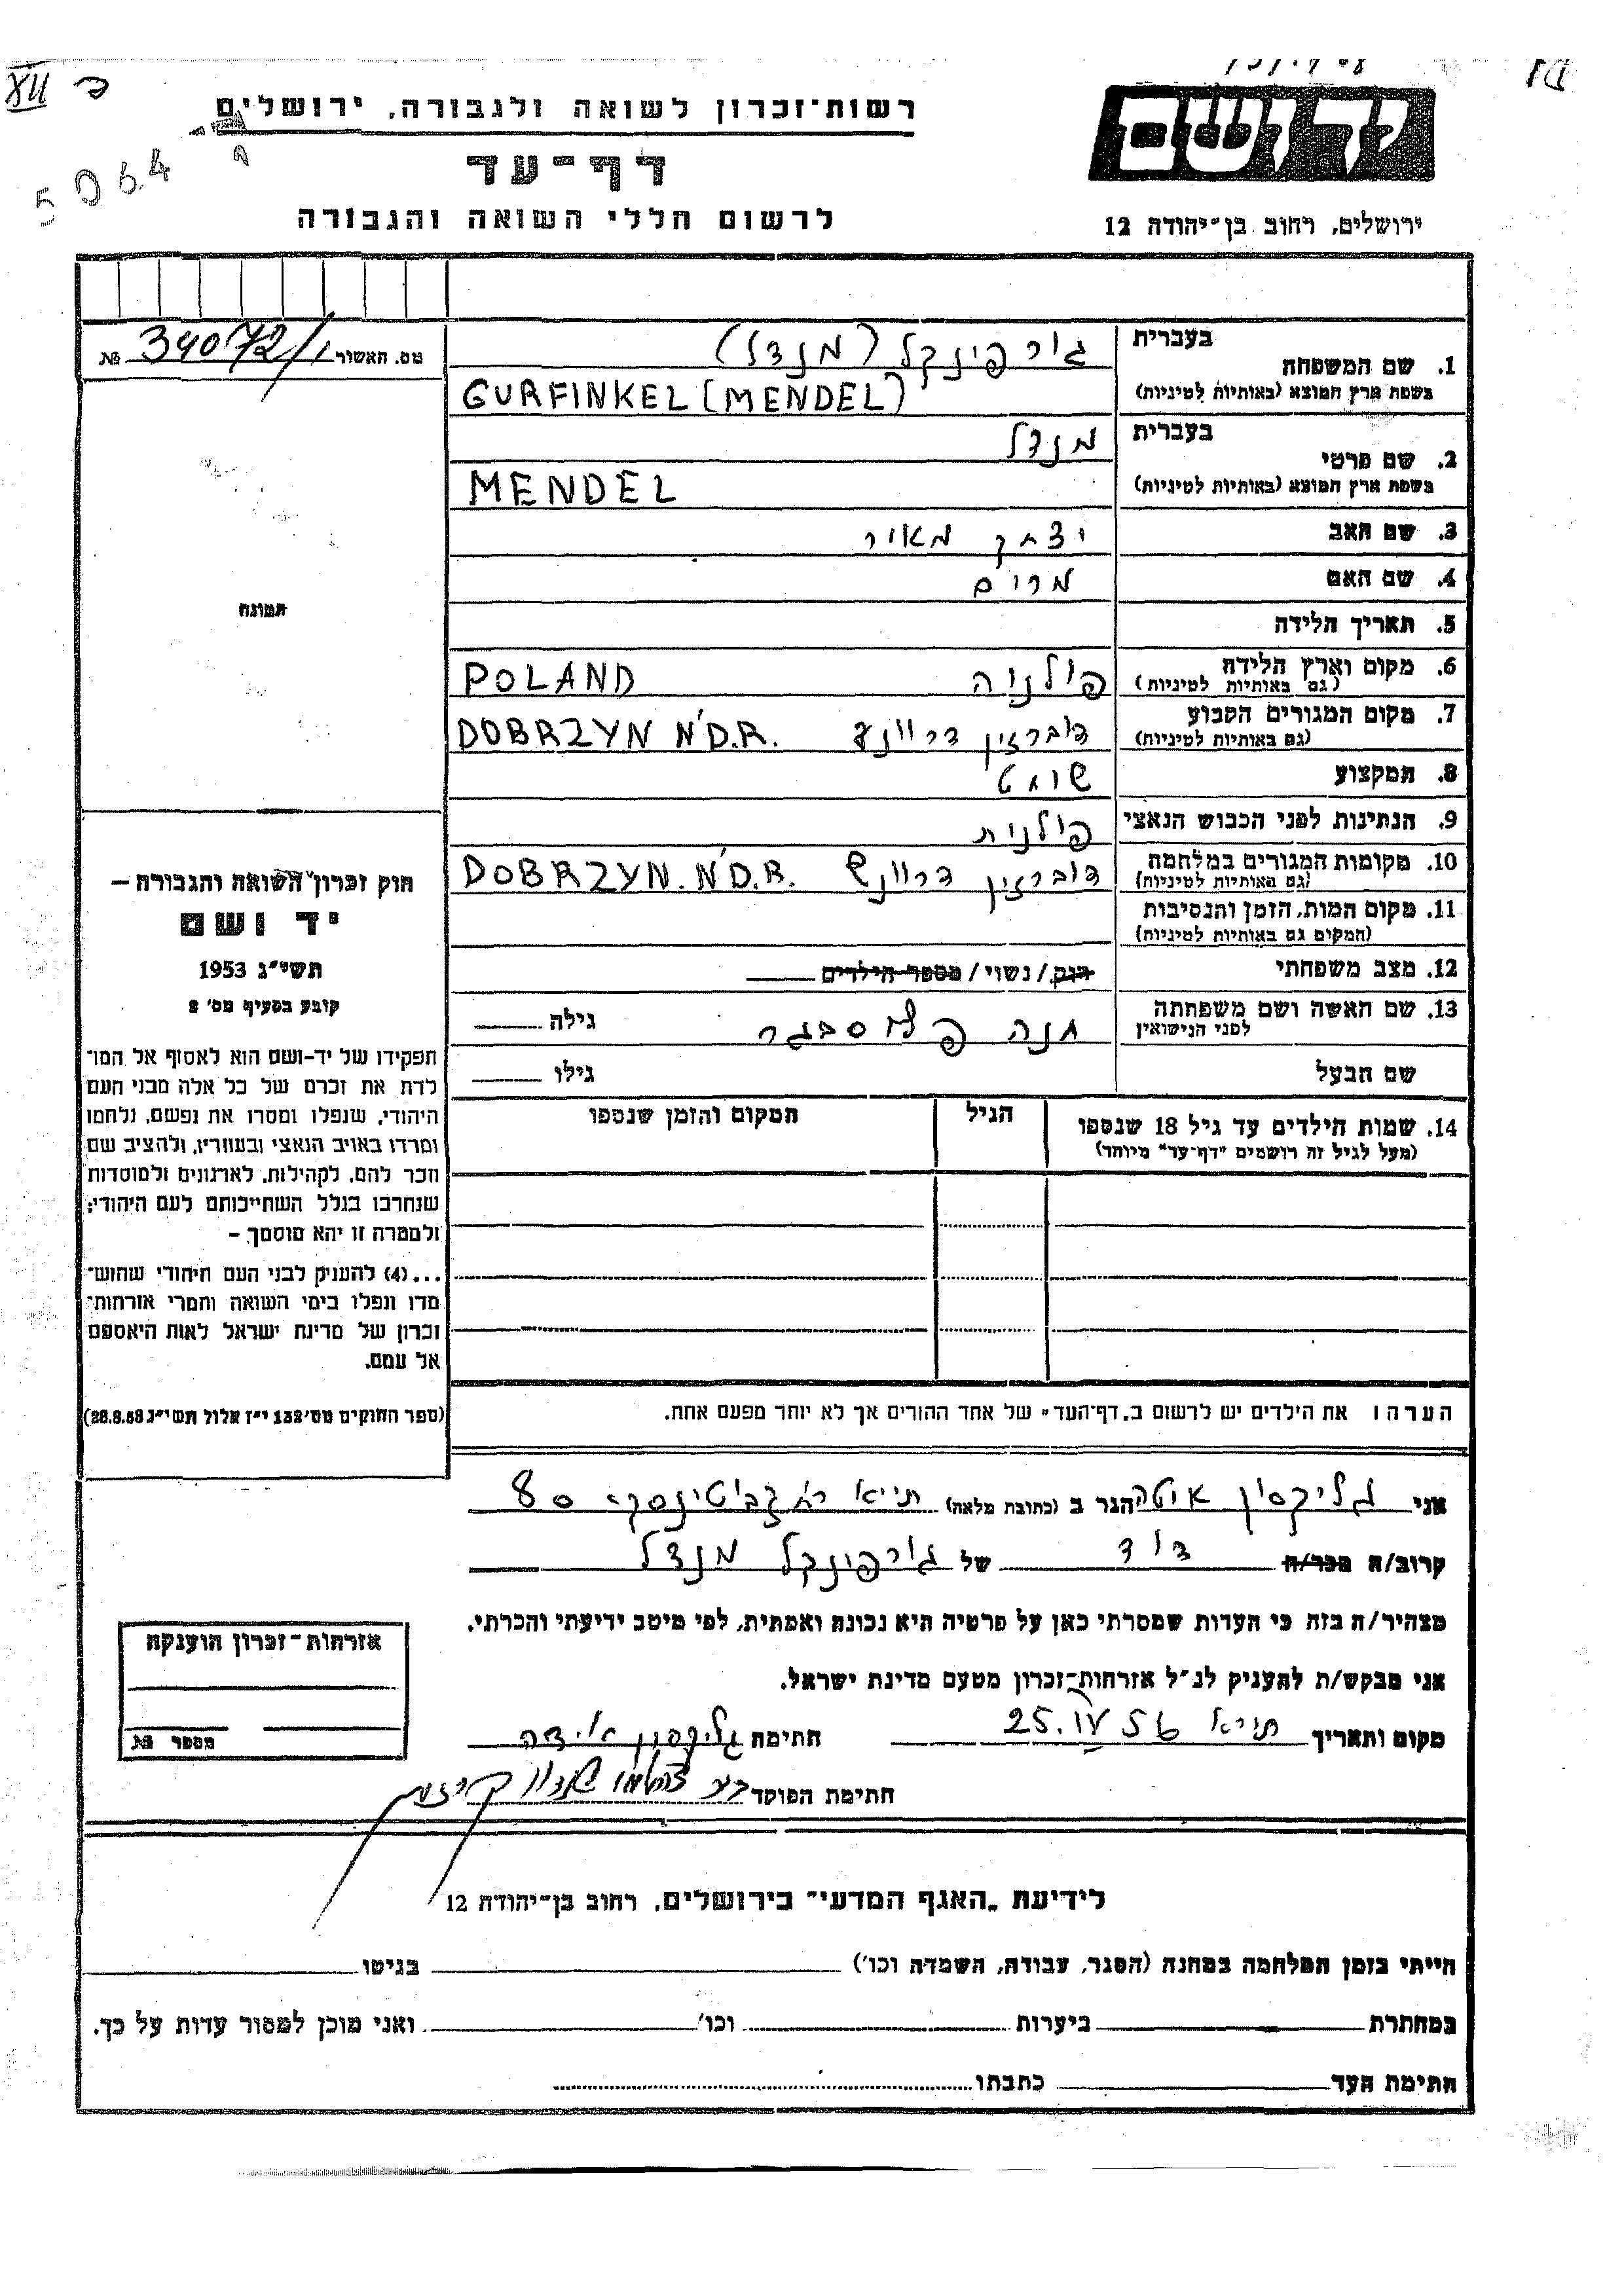 XII כ
5064
רשות־זכרון לשואה ולגבורה, ירושלים
דף־עד
לרשום חללי השואה והגבורה
יד ושם
ירושלים, רחוב בן־יהודה 12
מס. האשור 34072/1 №
1. שם המשפחה בעברית גורפינקל (מנדל)
בשפת ארץ המוצא (באותיות לטיניות) GURFINKEL (MENDEL)
2. שם פרטי בעברית מנדל
בשפת ארץ המוצא (באותיות לטיניות) MENDEL
3. שם האב יצחק מאיר
4. שם האם מרים
5. תאריך הלידה
6. מקום וארץ הלידה (גם באותיות לטיניות) פולניה POLAND
7. מקום המגורים הקבוע (גם באותיות לטיניות) דוברזין דרוונע DOBRZYN N'D.R.
8. המקצוע שוחט
9. הנתינות לפני הכבוש הנאצי פולנית
10. מקומות המגורים במלחמה (גם באותיות לטיניות) דוברזין דרוונע DOBRZYN. N'D.R.
11. מקום המות, הזמן והנסיבות (המקום גם באותיות לטיניות)
12. מצב משפחתי רווק / נשוי / מספר הילדים
13. שם האשה ושם משפחתה לפני הנישואין חנה גילה
שם הבעל גילו
14. שמות הילדים עד גיל 18 שנספו הגיל המקום והזמן שנספו
(מעל לגיל זה רושמים "דף־עד" מיוחד)
הערה: את הילדים יש לרשום ב„דף־העד" של אחד ההורים אך לא יותר מפעם אחת.
תמונה
חוק זכרון השואה והגבורה —
יד ושם
תשי״ג 1953
קובע בסעיף מס' 2
תפקידו של יד־ושם הוא לאסוף אל המו־
לדת את זכרם של כל אלה מבני העם
היהודי, שנפלו ומסרו את נפשם, נלחמו
ומרדו באויב הנאצי ובעוזריו, ולהציב שם
וזכר להם, לקהילות, לארגונים ולמוסדות
שנחרבו בגלל השתייכותם לעם היהודי;
ולמטרה זו יהא מוסמך —
...(4) להעניק לבני העם היהודי שהוש־
מדו ונפלו בימי השואה והמרי אזרחות־
זכרון של מדינת ישראל לאות היאספם
אל עמם.
(ספר החוקים מס' 132 י״ז אלול תשי״ג 28.8.53)
אני גליקסון איטה הגר ב (כתובת מלאה) ת״א רח ז'בוטינסקי 80
קרוב/ה מכר/ה דוד של גורפינקל מנדל
מצהיר/ה בזה כי העדות שמסרתי כאן על פרטיה היא נכונה ואמתית, לפי מיטב ידיעתי והכרתי.
אני מבקש/ת להעניק לנ״ל אזרחות־זכרון מטעם מדינת ישראל.
מקום ותאריך 25.IV 56 חתימה גליקסון
חתימת הפוקד
אזרחות־זכרון הוענקה
מספר №
לידיעת „האגף המדעי" בירושלים, רחוב בן־יהודה 12
הייתי בזמן המלחמה במחנה (הסגר, עבודה, השמדה וכו') בגיטו
במחתרת ביערות וכו' ואני מוכן למסור עדות על כך.
חתימת העד כתבתו